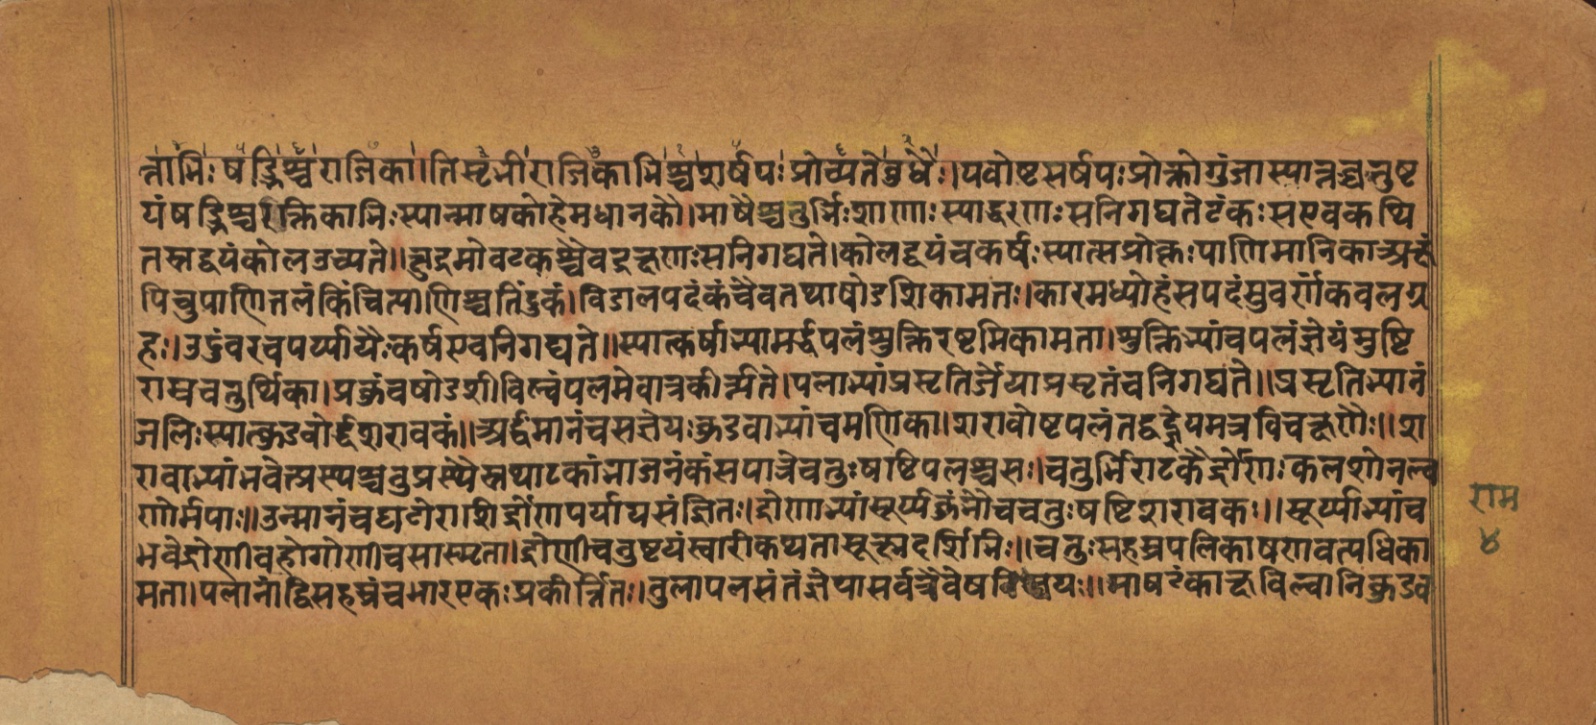 त्नाभिः षड्भिश्च राजिका।तिसृभीराजिकाभिश्च शर्षपः प्रोच्यते बुधैः।यवोष्टसर्षपः प्रोक्तो गुंजा स्यात्तच्चतुष्ट
यंषड्भिश्चरक्तिकाभिःस्यान्माषकोहेमधानकौ।माषैश्चतुर्भिःशाणःस्याद्धरणःसनिगद्यतेटंकःसएवकथि
तस्तद्द्वयंकोलउच्यते॥क्षुद्रमोवटकश्चैवद्रङ्क्षणःसनिगद्यते।कोलद्वयंचकर्षःस्यात्सप्रोक्तःपाणिमानिकाअक्षं
पिचुपाणितलंकिंचित्पाणिश्चतिंडुकं।विडालपदंकंचैवतथाषोडशिकामतः।कारमध्योहंसपदंसुवर्णकवलग्र
हः।उडुंवरवपर्य्यायैःकर्षएवनिगद्यते॥स्यात्कर्षाभ्यामर्द्धपलंशुक्तिरष्टमिकामता।शुक्तिभ्यांचपलंज्ञेयंमुष्टि
राम्रचतुर्थिका।प्रकुंचषोडशीविल्वंपलमेवात्रकीर्त्यते।पलाभ्यांप्रसृतिर्ज्ञेयाप्रसृतंचनिगद्यते॥प्रसृतिभ्यानं
जलिःस्यात्कुडवोर्द्धशरावकं॥अर्द्धमानंचसज्ञेयःकुडवाभ्यांचमणिका।शरावोष्टपलंतद्वद्ज्ञेयमत्रविचक्षणैः॥श
रावाभ्यांभवेत्प्रस्थश्चतुप्रस्थैस्तथाटकांभाजनंकंसपात्रेचतुःषष्टिपलश्चसः।चतुर्भिराटकैर्द्रोणःकलशोनल्व
णोर्मपाः॥उन्मानंचघटोराशिर्द्रोणपर्यायसंज्ञितः।द्रोणाभ्यांसूर्प्यकुंभौचचतुःषष्टिशरावकः॥सूर्प्याभ्यांच
भवेद्रोणीवहोगोणीचसास्मृता।द्रोणीचतुष्टयंखारीकथतासूक्ष्मदर्शिभिः॥चतुःसहस्रपलिकाषणवत्यधिका
मता।पलानांद्विसहस्रंचभारएकःप्रकीर्त्तितः।तुलापलसंतंज्ञेयासर्वत्रैवेषनिश्चयः॥माषटंकाक्षविल्वानिकुडव
राम
४